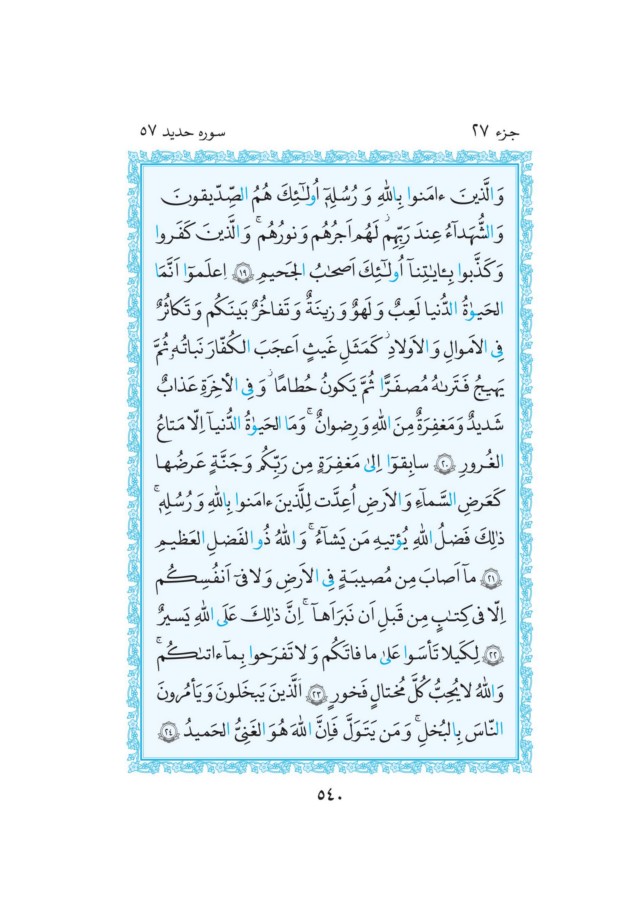 جزء ۲۷
سوره حدید ۵۷
وَ الَّذینَ ءامَنوا بِاللهِ وَ رُسُلِهٖٓ اُولٰٓئِكَ هُمُ الصِّدّیقونَ
وَ الشُّهَدآءُ عِندَ رَبِّهِم لَهُم اَجرُهُم وَ نورُهُم ۚ وَ الَّذینَ كَفَروا
وَ كَذَّبوا بِـٔایٰتِنآ اُولٰٓئِكَ اَصحٰبُ الجَحیمِ ﴿۱۹﴾ اِعلَموٓا اَنَّمَا
الحَیوٰةُ الدُّنیا لَعِبٌ وَ لَهوٌ وَ زینَةٌ وَ تَفاخُرٌ بَینَكُم وَ تَكاثُرٌ
فِی الاَموالِ وَ الاَولادِ كَمَثَلِ غَیثٍ اَعجَبَ الكُفّارَ نَباتُهٗ ثُمَّ
یَهیجُ فَتَرىٰهُ مُصفَرًّا ثُمَّ یَكونُ حُطامًا ۖ وَ فِی الأخِرَةِ عَذابٌ
شَدیدٌ وَ مَغفِرَةٌ مِنَ اللهِ وَ رِضوانٌ ۚ وَ مَا الحَیوٰةُ الدُّنیآ اِلّا مَتاعُ
الغُرورِ ﴿۲۰﴾ سابِقوٓا اِلىٰ مَغفِرَةٍ مِن رَبِّكُم وَ جَنَّةٍ عَرضُها
كَعَرضِ السَّمآءِ وَ الاَرضِ اُعِدَّت لِلَّذینَ ءامَنوا بِاللهِ وَ رُسُلِهٖ ۚ
ذٰلِكَ فَضلُ اللهِ یُؤتیهِ مَن یَشآءُ ۚ وَ اللهُ ذُو الفَضلِ العَظیمِ
﴿۲۱﴾ مآ اَصابَ مِن مُصیبَةٍ فِی الاَرضِ وَ لا فیٓ اَنفُسِكُم
اِلّا فی كِتٰبٍ مِن قَبلِ اَن نَبرَاَهآ ۚ اِنَّ ذٰلِكَ عَلَى اللهِ یَسیرٌ
﴿۲۲﴾ لِكَیلا تَأسَوا عَلىٰ ما فاتَكُم وَ لا تَفرَحوا بِمآ ءاتىٰكُم ۗ
وَ اللهُ لا یُحِبُّ كُلَّ مُختالٍ فَخورٍ ﴿۲۳﴾ اَلَّذینَ یَبخَلونَ وَ یَأمُرونَ
النّاسَ بِالبُخلِ ۗ وَ مَن یَتَوَلَّ فَاِنَّ اللهَ هُوَ الغَنِیُّ الحَمیدُ ﴿۲۴﴾
۵۴۰